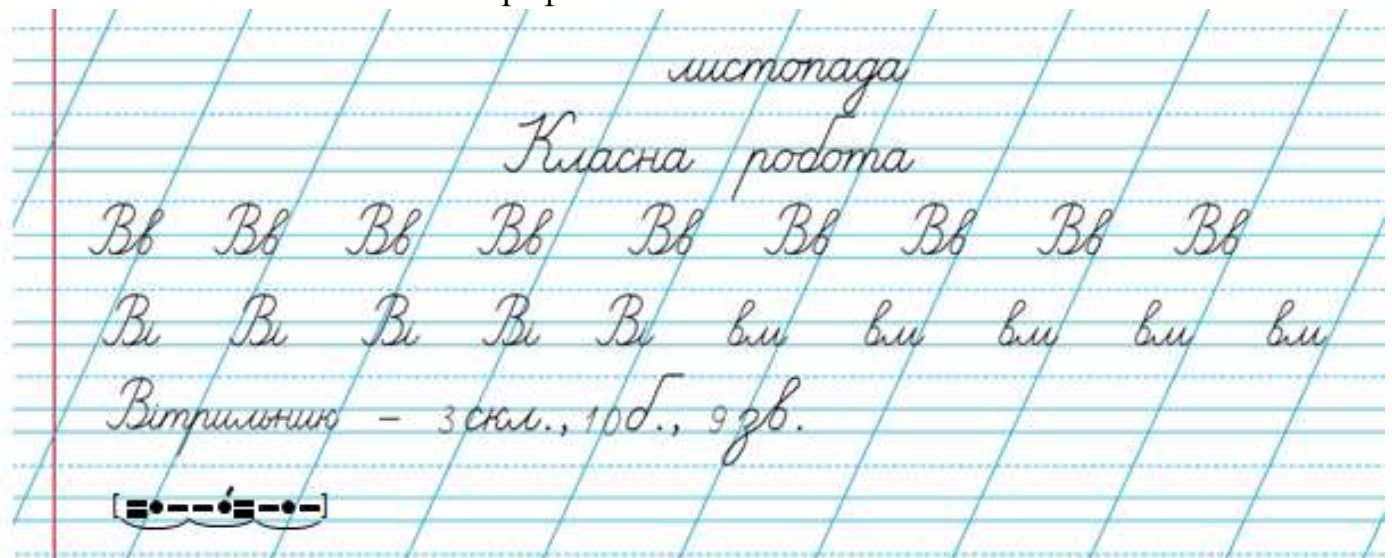 листопада
Класна робота
Вв Вв Вв Вв Вв Вв Вв Вв Вв
Ві Ві Ві Ві Ві вм вм вм вм вм
Вітрильник – 3 скл., 10 б., 9 зв.
[=•––•́=–•–]